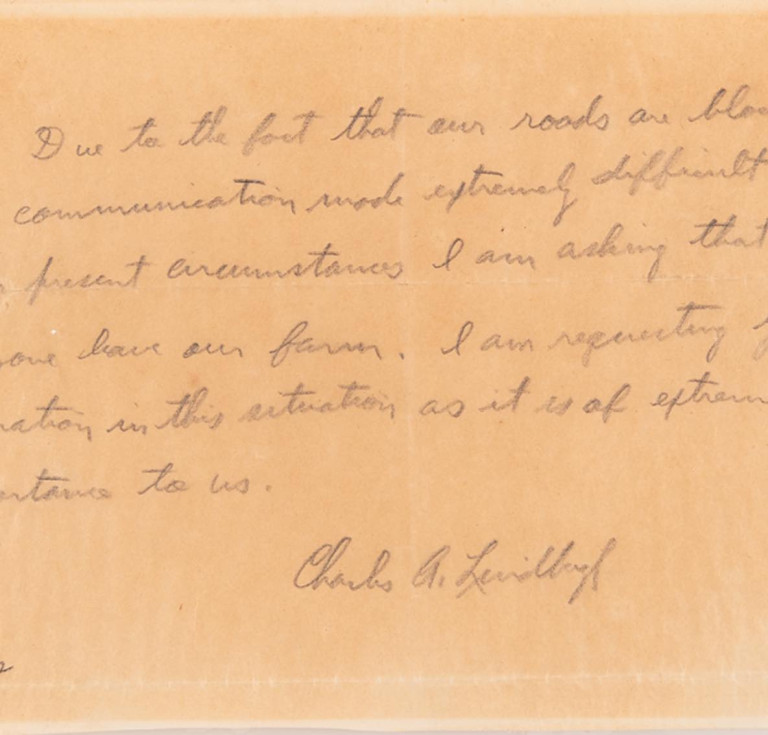 Due to the fact that our roads are bloc
communication made extremely difficult
present circumstances I am asking that
one leave our farm. I am requesting
ration in this situation as it is of extrem
ortance to us.
Charles A. Lindbergh